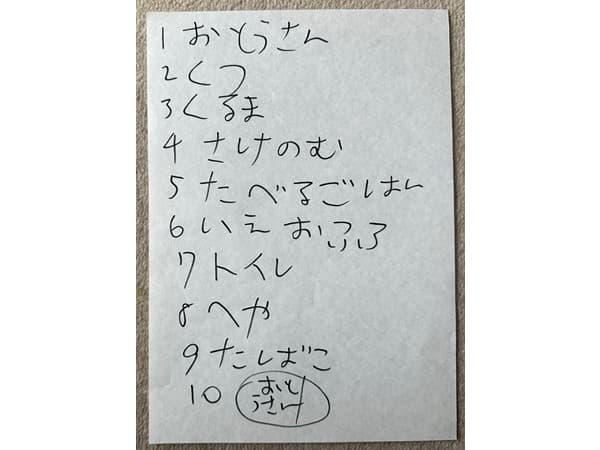 1 おとうさん
2 くつ
3 くるま
4 さけのむ
5 たべるごはん
6 いえ おふろ
7 トイレ
8 へや
9 たばこ
10 おと
うさん